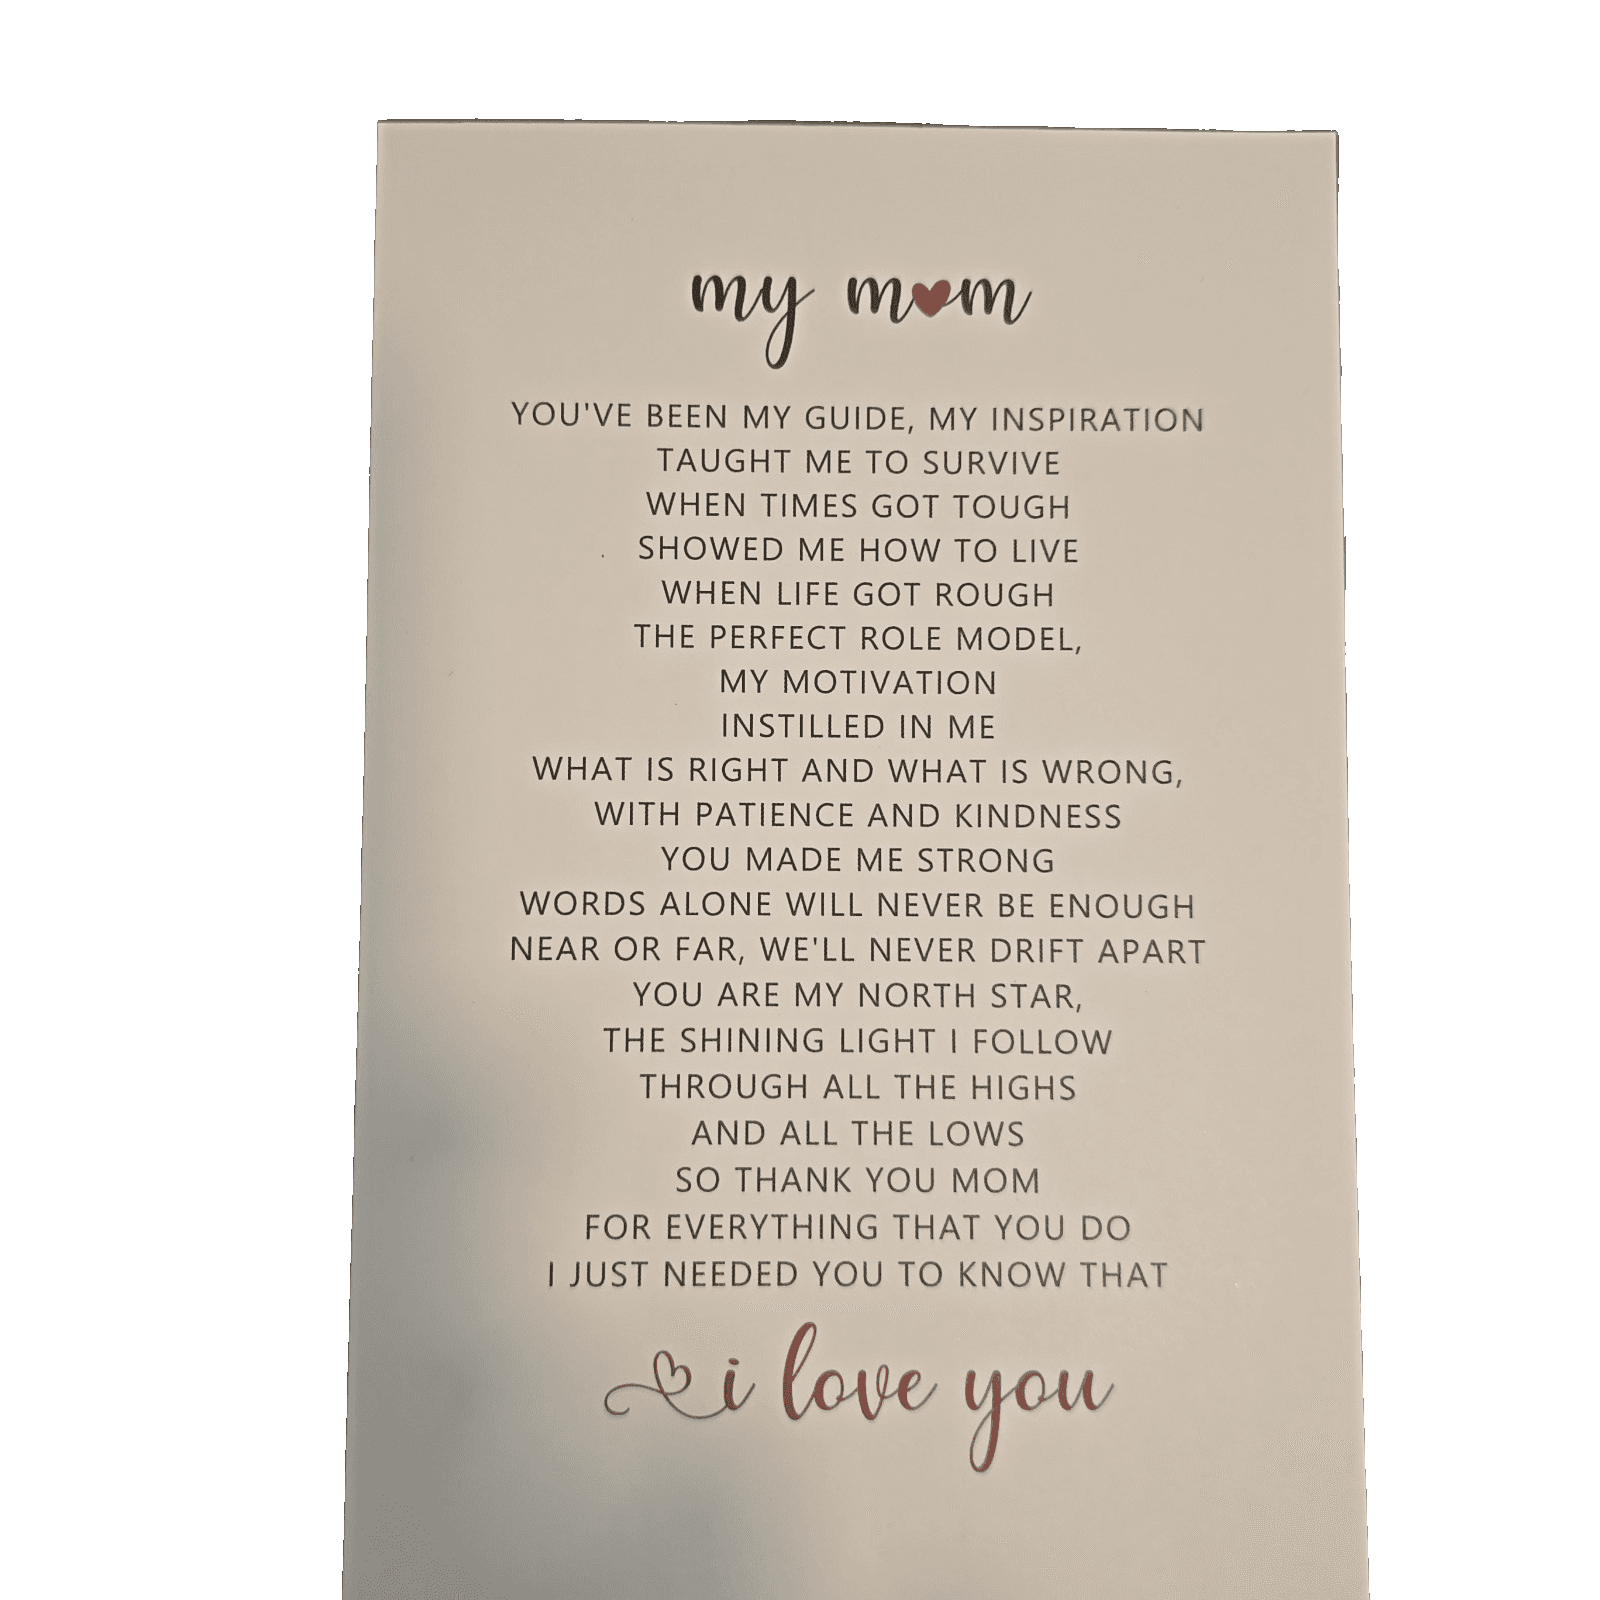 my mom
YOU'VE BEEN MY GUIDE, MY INSPIRATION
TAUGHT ME TO SURVIVE
WHEN TIMES GOT TOUGH
SHOWED ME HOW TO LIVE
WHEN LIFE GOT ROUGH
THE PERFECT ROLE MODEL,
MY MOTIVATION
INSTILLED IN ME
WHAT IS RIGHT AND WHAT IS WRONG,
WITH PATIENCE AND KINDNESS
YOU MADE ME STRONG
WORDS ALONE WILL NEVER BE ENOUGH
NEAR OR FAR, WE'LL NEVER DRIFT APART
YOU ARE MY NORTH STAR,
THE SHINING LIGHT I FOLLOW
THROUGH ALL THE HIGHS
AND ALL THE LOWS
SO THANK YOU MOM
FOR EVERYTHING THAT YOU DO
I JUST NEEDED YOU TO KNOW THAT
i love you